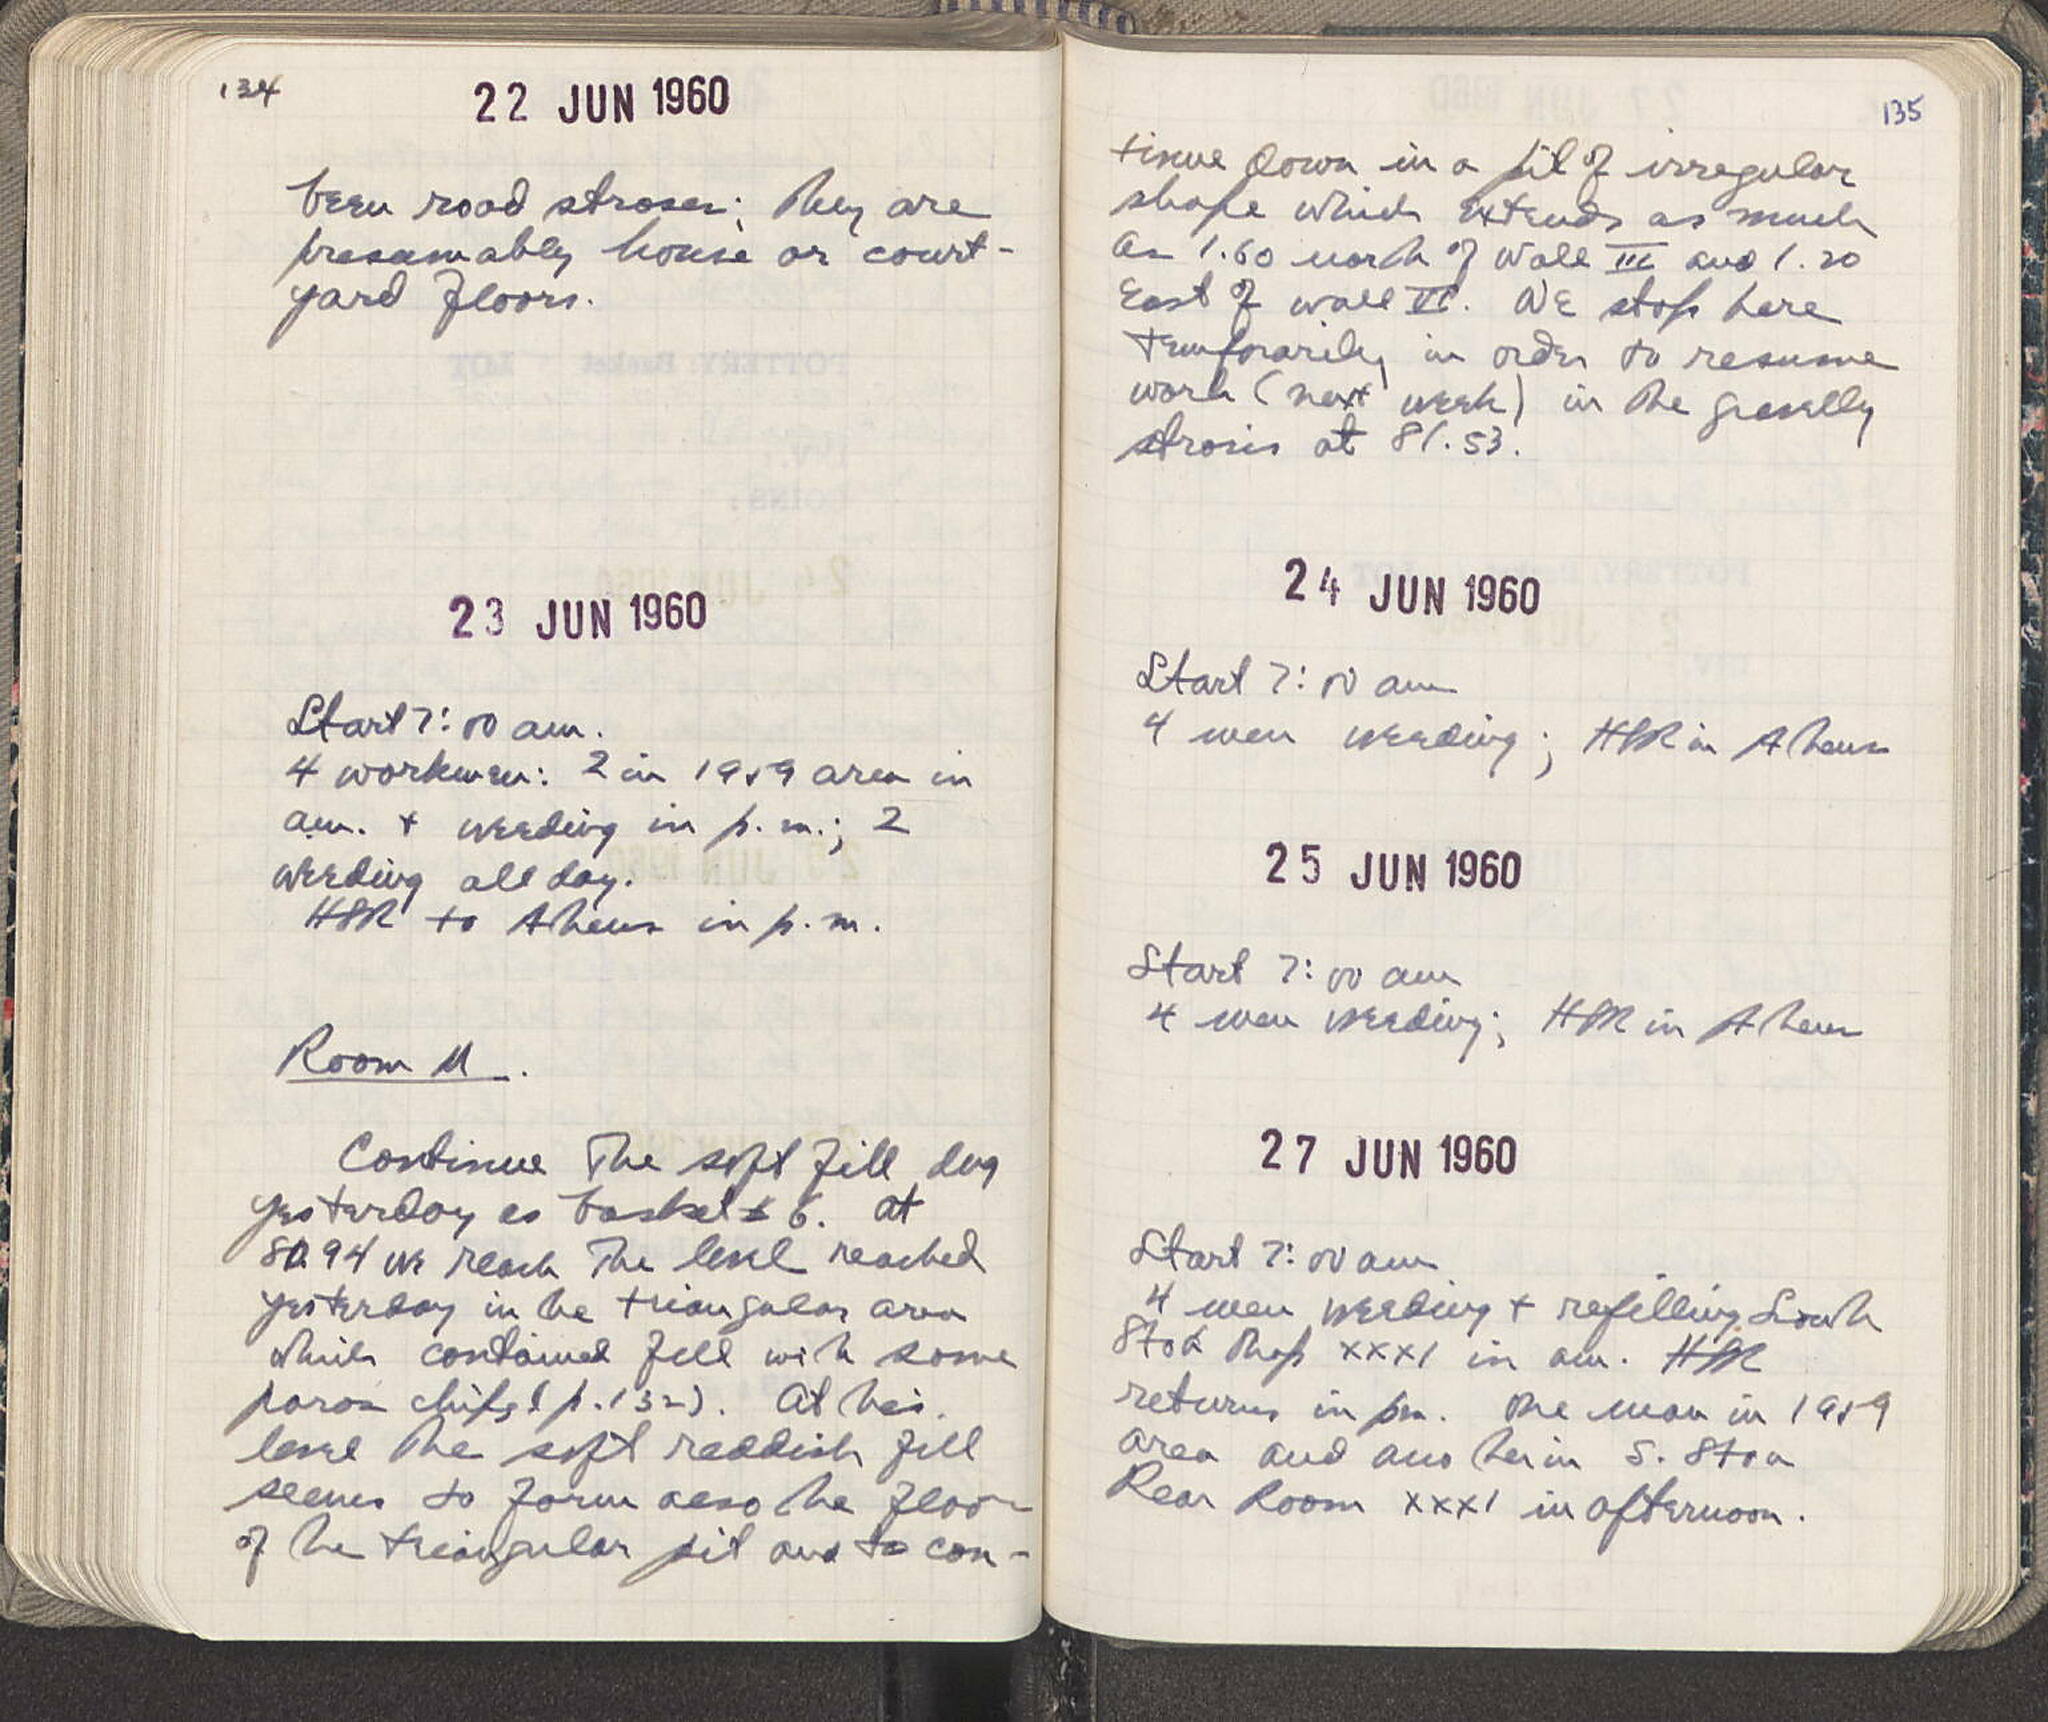 134
22 JUN 1960
been road stroses; they are
presumably house or court-
yard floors.
23 JUN 1960
Start 7:00 am.
4 workmen: 2 in 1959 area in
am. + weeding in p.m.; 2
weeding all day.
HSR to Athens in p.m.
Room M.
Continue the soft fill dug
yesterday as basket 6. At
80.94 we reach the level reached
yesterday in the triangular area
which contained fill with some
poros chips (p. 132). At this
level the soft reddish fill
seems to form also the floor
of the triangular pit and to con-
135
tinue down in a pit of irregular
shape which extends as much
as 1.60 north of Wall III and 1.20
east of wall VI. We stop here
temporarily in order to resume
work (next week) in the gravelly
strosis at 81.53.
24 JUN 1960
Start 7:00 am
4 men weeding; HSR in Athens
25 JUN 1960
Start 7:00 am
4 men weeding; HSR in Athens
27 JUN 1960
Start 7:00 am
4 men weeding + refilling South
Stoa Shop XXXI in am. HSR
returns in pm. One man in 1959
area and another in S. Stoa
Rear Room XXXI in afternoon.